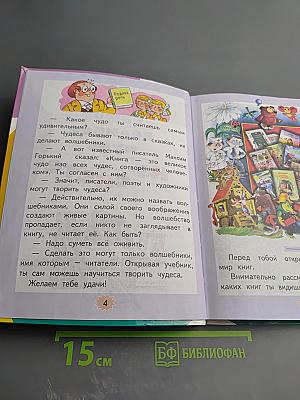 — Какое чудо ты считаешь самым
удивительным?
— Чудеса бывают только в сказках, их
делают волшебники.
— А вот известный писатель Максим
Горький сказал: «Книга — это великое
чудо изо всех чудес, сотворённых челове-
ком». Ты согласен с ним?
— Значит, писатели, поэты и художники
могут творить чудеса?
— Действительно, их можно назвать вол-
шебниками. Они силой своего воображения
создают живые картины. Но волшебство
пропадает, если никто не заглядывает в
книгу, не читает её. Как быть?
— Надо суметь всё оживить.
— Сделать это могут только волшебники,
имя которым — читатели. Открывая учебник,
ты сам можешь научиться творить чудеса.
Желаем тебе удачи!
4
Перед тобой
мир книг.
Внимательно
каких книг ты
15 см
БФ БИБЛИОФАН